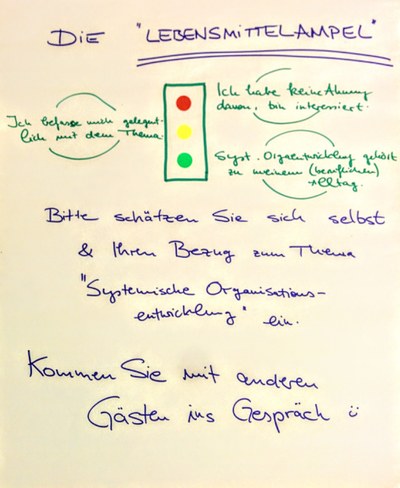 DIE "LEBENSMITTELAMPEL"
Ich habe keine Ahnung
davon, bin interessiert.
Ich befasse mich gelegent-
lich mit dem Thema.
Syst. Orgaentwicklung gehört
zu meinem (beruflichen)
Alltag.
Bitte schätzen Sie sich selbst
& Ihren Bezug zum Thema
"Systemische Organisations-
entwicklung" ein.
Kommen Sie mit anderen
Gästen ins Gespräch ü